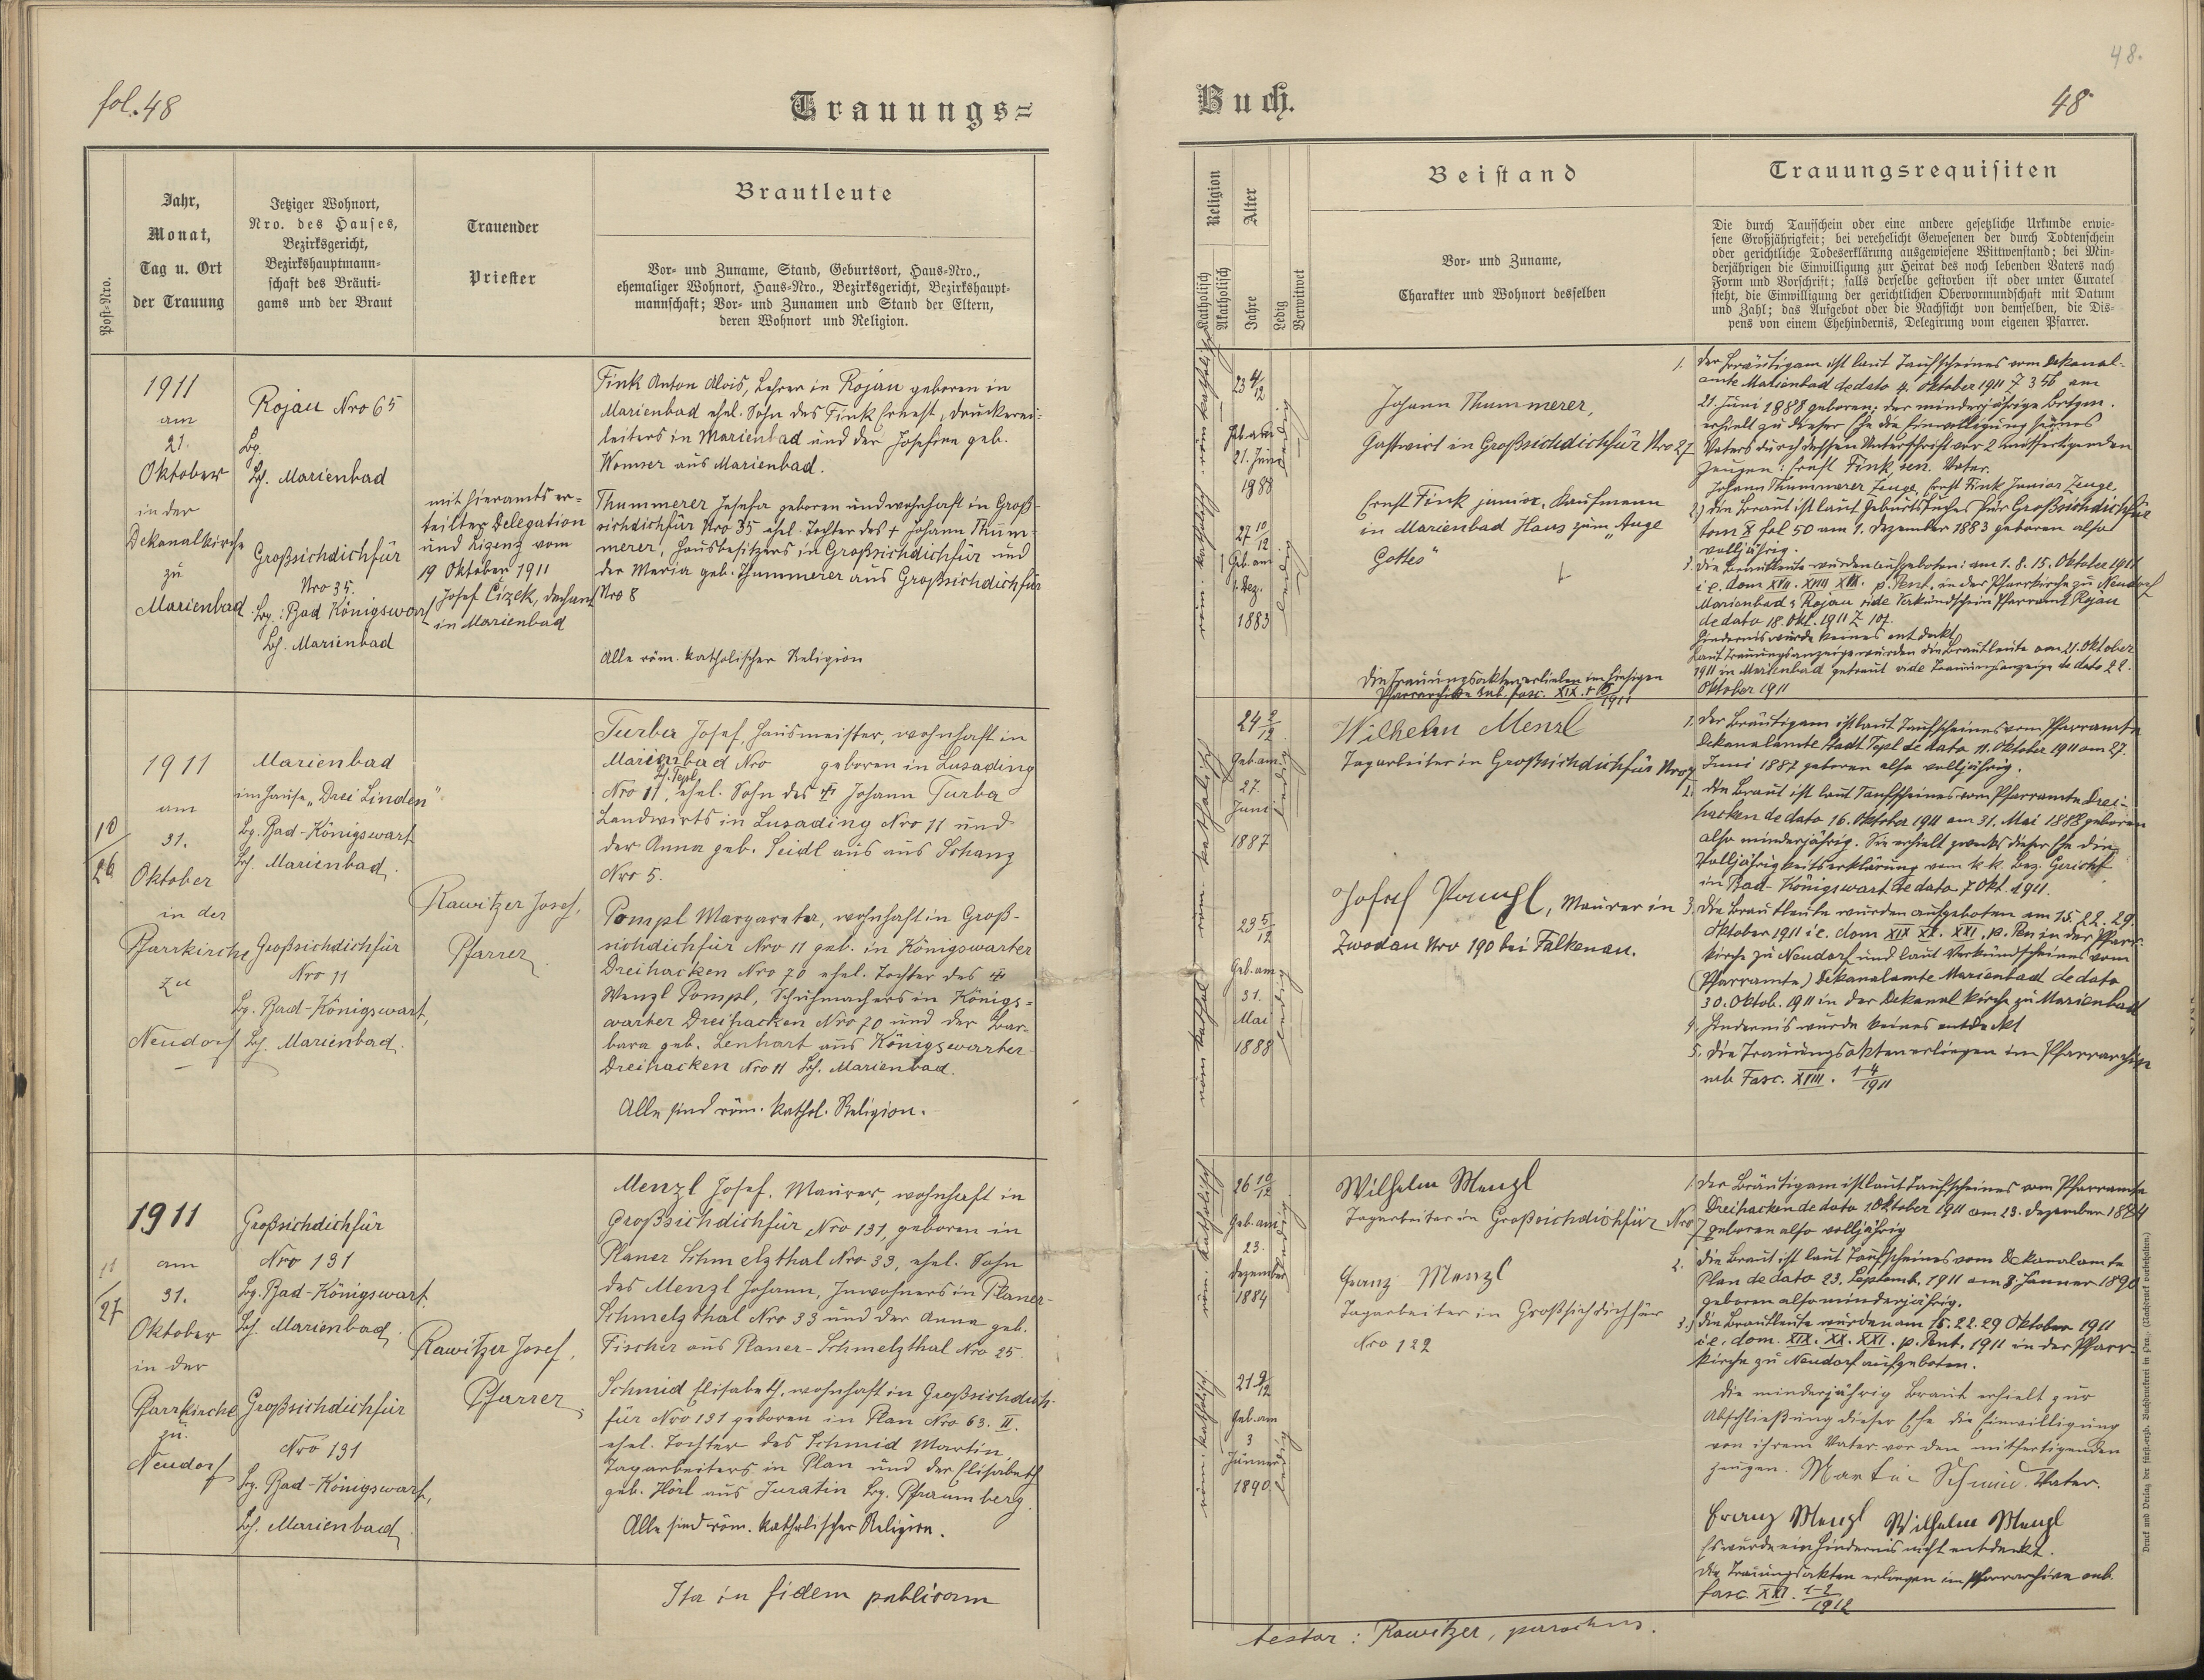 fol. 48
Trauungs=
Post-Nro.
Jahr,
Monat,
Tag u. Ort
der Trauung
Jetziger Wohnort,
Nro. des Hauses,
Bezirksgericht,
Bezirkshauptmann=
schaft des Bräuti=
gams und der Braut
Trauender
Priester
Brautleute
Vor= und Zuname, Stand, Geburtsort, Haus=Nro.,
ehemaliger Wohnort, Haus=Nro., Bezirksgericht, Bezirkshaupt=
mannschaft; Vor= und Zunamen und Stand der Eltern,
deren Wohnort und Religion.
1911
am
21.
Oktober
in der
Dekanalkirche
zu
Marienbad
Rojau Nro 65
Bg.
Bh. Marienbad
Großsichdichfür
Nro 35.
Bg.: Bad Königswart
Bh. Marienbad
mit hieramts er=
teilter Delegation
und Lizenz vom
19 Oktober 1911
Josef Čizek, Dechant
in Marienbad
Fink Anton Alois, Lehrer in Rojau geboren in
Marienbad ehel. Sohn des Fink Ernest, Druckerei=
leiters in Marienbad und der Josefine geb.
Womser aus Marienbad.
Thummerer Josefa geboren und wohnhaft in Groß=
sichdichfür Nro 35 ehel. Tochter des † Johann Thum=
merer, Hausbesitzers in Großsichdichfür und
der Maria geb. Thummerer aus Großsichdichfür
Nro 8
Alle röm. katholischer Religion
10
26
1911
am
31.
Oktober
in der
Pfarrkirche
zu
Neudorf
Marienbad
im Hause „Drei Linden"
Bg. Bad-Königswart
Bh. Marienbad.
Großsichdichfür
Nro 11
Bg. Bad-Königswart,
Bh. Marienbad.
Rawitzer Josef,
Pfarrer
Turba Josef, Hausmeister, wohnhaft in
Marienbad Nro geboren in Lusading
Bh. Tepl
Nro 11, ehel. Sohn des † Johann Turba
Landwirts in Lusading Nro 11 und
der Anna geb. Seidl aus aus Schanz
Nro 5.
Pompl Margareta, wohnhaft in Groß-
sichdichfür Nro 11 geb. in Königswarter
Dreihacken Nro 70 ehel. Tochter des †
Wenzl Pompl, Schuhmachers in Königs=
warter Dreihacken Nro 70 und der Bar-
bara geb. Lenhart aus Königswarter
Dreihacken Nro 11 Bh. Marienbad.
Alle sind röm. kathol. Religion.
11
27
1911
am
31.
Oktober
in der
Pfarrkirche
zu
Neudorf
Großsichdichfür
Nro 131
Bg. Bad-Königswart
Bh. Marienbad.
Großsichdichfür
Nro 131
Bg. Bad-Königswart,
Bh. Marienbad
Rawitzer Josef,
Pfarrer
Menzl Josef, Maurer, wohnhaft in
Großsichdichfür Nro 131, geboren in
Planer Schmelzthal Nro 33, ehel. Sohn
des Menzl Johann, Inwohners in Planer-
Schmelzthal Nro 33 und der Anna geb.
Fischer aus Planer-Schmelzthal Nro 25.
Schmid Elisabeth, wohnhaft in Großsichdich-
für Nro 131 geboren in Plan Nro 63. II.
ehel. Tochter des Schmid Martin,
Tagarbeiters in Plan und der Elisabeth
geb. Hörl aus Juratin Bg. Pfraumberg.
Alle sind röm. katholischer Religion.
Ita in fidem publicam
48.
Buch.
48
Religion
Katholisch
Akatholisch
Alter
Jahre
Ledig
Verwitwet
Beistand
Vor= und Zuname,
Charakter und Wohnort desselben
Trauungsrequisiten
Die durch Taufschein oder eine andere gesetzliche Urkunde erwie=
sene Großjährigkeit; bei verehelicht Gewesenen der durch Todtenschein
oder gerichtliche Todeserklärung ausgewiesene Wittwenstand; bei Min=
derjährigen die Einwilligung zur Heirat des noch lebenden Vaters nach
Form und Vorschrift; falls derselbe gestorben ist oder unter Curatel
steht, die Einwilligung der gerichtlichen Obervormundschaft mit Datum
und Zahl; das Aufgebot oder die Nachsicht von demselben, die Dis=
pens von einem Ehehindernis, Delegirung vom eigenen Pfarrer.
röm. katholisch röm. katholisch
23 4/12
Geb. am
21. Juni
1988
ledig
27 10/12
Geb. am
1. Dez.
1883
ledig
Johann Thummerer,
Gastwirt in Großsichdichfür Nro 27
Ernst Fink junior, Kaufmann
in Marienbad Haus zum „Auge
Gottes"
Die Trauungsakten erliegen im hiesigen
Pfarrarchive sub. fasc. XIX. 1911
1. Der Bräutigam ist laut Taufscheines vom Dekanal-
amte Marienbad dedato 4. Oktober 1911 Z 356 am
21. Juni 1888 geboren; der minderjährige Brtgm.
erhielt zu dieser Ehe die Einwilligung seines
Vaters durch dessen Unterschrift vor 2 mitfertigenden
Zeugen: Ernst Fink, sen. Vater.
Johann Thummerer Zeuge, Ernst Fink Junior Zeuge
2.) Die Braut ist laut Geburtsbuches für Großsichdichfür
tom X fol 50 am 1. Dezember 1883 geboren also
volljährig.
3. Die Brautleute wurden aufgeboten: am 1. 8. 15. Oktober 1911
i e. dom XVII. XVIII XIX. p. Pent. in der Pfarrkirche zu Neudorf
Marienbad & Rojau vide Verkündschein Pfarramt Rojau
de dato 18. Okt. 1911 Z 107.
Hindernis wurde keines entdeckt
Laut Trauungsanzeige wurden die Brautleute am 21. Oktober
1911 in Marienbad getraut vide Trauungsanzeige de dato 22.
Oktober 1911
röm kathol röm katholisch
24 2/12
Geb. am
27.
Juni
1887
ledig
23 5/12
Geb. am
31.
Mai
1888
ledig
Wilhelm Menzl
Tagarbeiter in Großsichdichfür Nro 7
Josef Pompl, Maurer in
Zwodau Nro 190 bei Falkenau.
1. Der Bräutigam ist laut Taufscheines vom Pfarramte
Dekanalamte Stadt Tepl de dato 11. Oktober 1911 am 27.
Juni 1887 geboren also volljährig.
2. Die Braut ist laut Taufscheines vom Pfarramte Drei-
hacken de dato 16. Oktober 1911 am 31. Mai 1888 geboren
also minderjährig. Sie erhielt zwecks dieser Ehe die
Volljährigkeitserklärung vom k. k. Bez. Gericht
in Bad-Königswart de dato 7 Okt. 1911.
3. Die Brautleute wurden aufgeboten am 15. 22. 29.
Oktober 1911 i e. dom XIX XX. XXI. p. Pen in der Pfarr-
kirche zu Neudorf und laut Verkündscheines vom
(Pfarramte) Dekanalamte Marienbad de dato
30. Oktob. 1911 in der Dekanalkirche zu Marienbad
4. Hindernis wurde keines entdeckt
5. Die Trauungsakten erliegen im Pfarrarchive
sub Fasc. XVIII. 1-4/1911
röm. katholisch
26 10/12
Geb. am
23.
Dezember
1884
ledig
röm. katholisch
21 9/12
Geb. am
3
Jänner
1890
ledig
Wilhelm Menzl
Tagarbeiter in Großsichdichfür Nro 7
Franz Menzl
Tagarbeiter in Großsichdichfür
Nro 122
1. Der Bräutigam ist laut Taufscheines vom Pfarramte
Dreihacken de dato 1 Oktober 1911 am 23. Dezember 1884
geboren also volljährig
2. Die Braut ist laut Taufscheines vom Dekanalamte
Plan de dato 23. Septemb. 1911 am 3. Jänner 1890
geboren also minderjährig.
3.) Die Brautleute wurden am 15. 22. 29 Oktober 1911
i e. dom. XIX. XX. XXI. p. Pent. 1911 in der Pfarr-
kirche zu Neudorf aufgeboten.
Die minderjährig Braut erhielt zur
Abschließung dieser Ehe die Einwilligung
von ihrem Vater vor den mitfertigenden
Zeugen. Martin Schmid Vater.
Franz Menzl Wilhelm Menzl
Es wurde ein Hindernis nicht entdeckt.
Die Trauungsakten erliegen im Pfarrarchive sub.
fasc. XXI. 1-2/1912
testor: Rawitzer, parochus.
Druck und Verlag der fürst.=erzb. Buchdruckerei in Prag. (Nachdruck vorbehalten.)